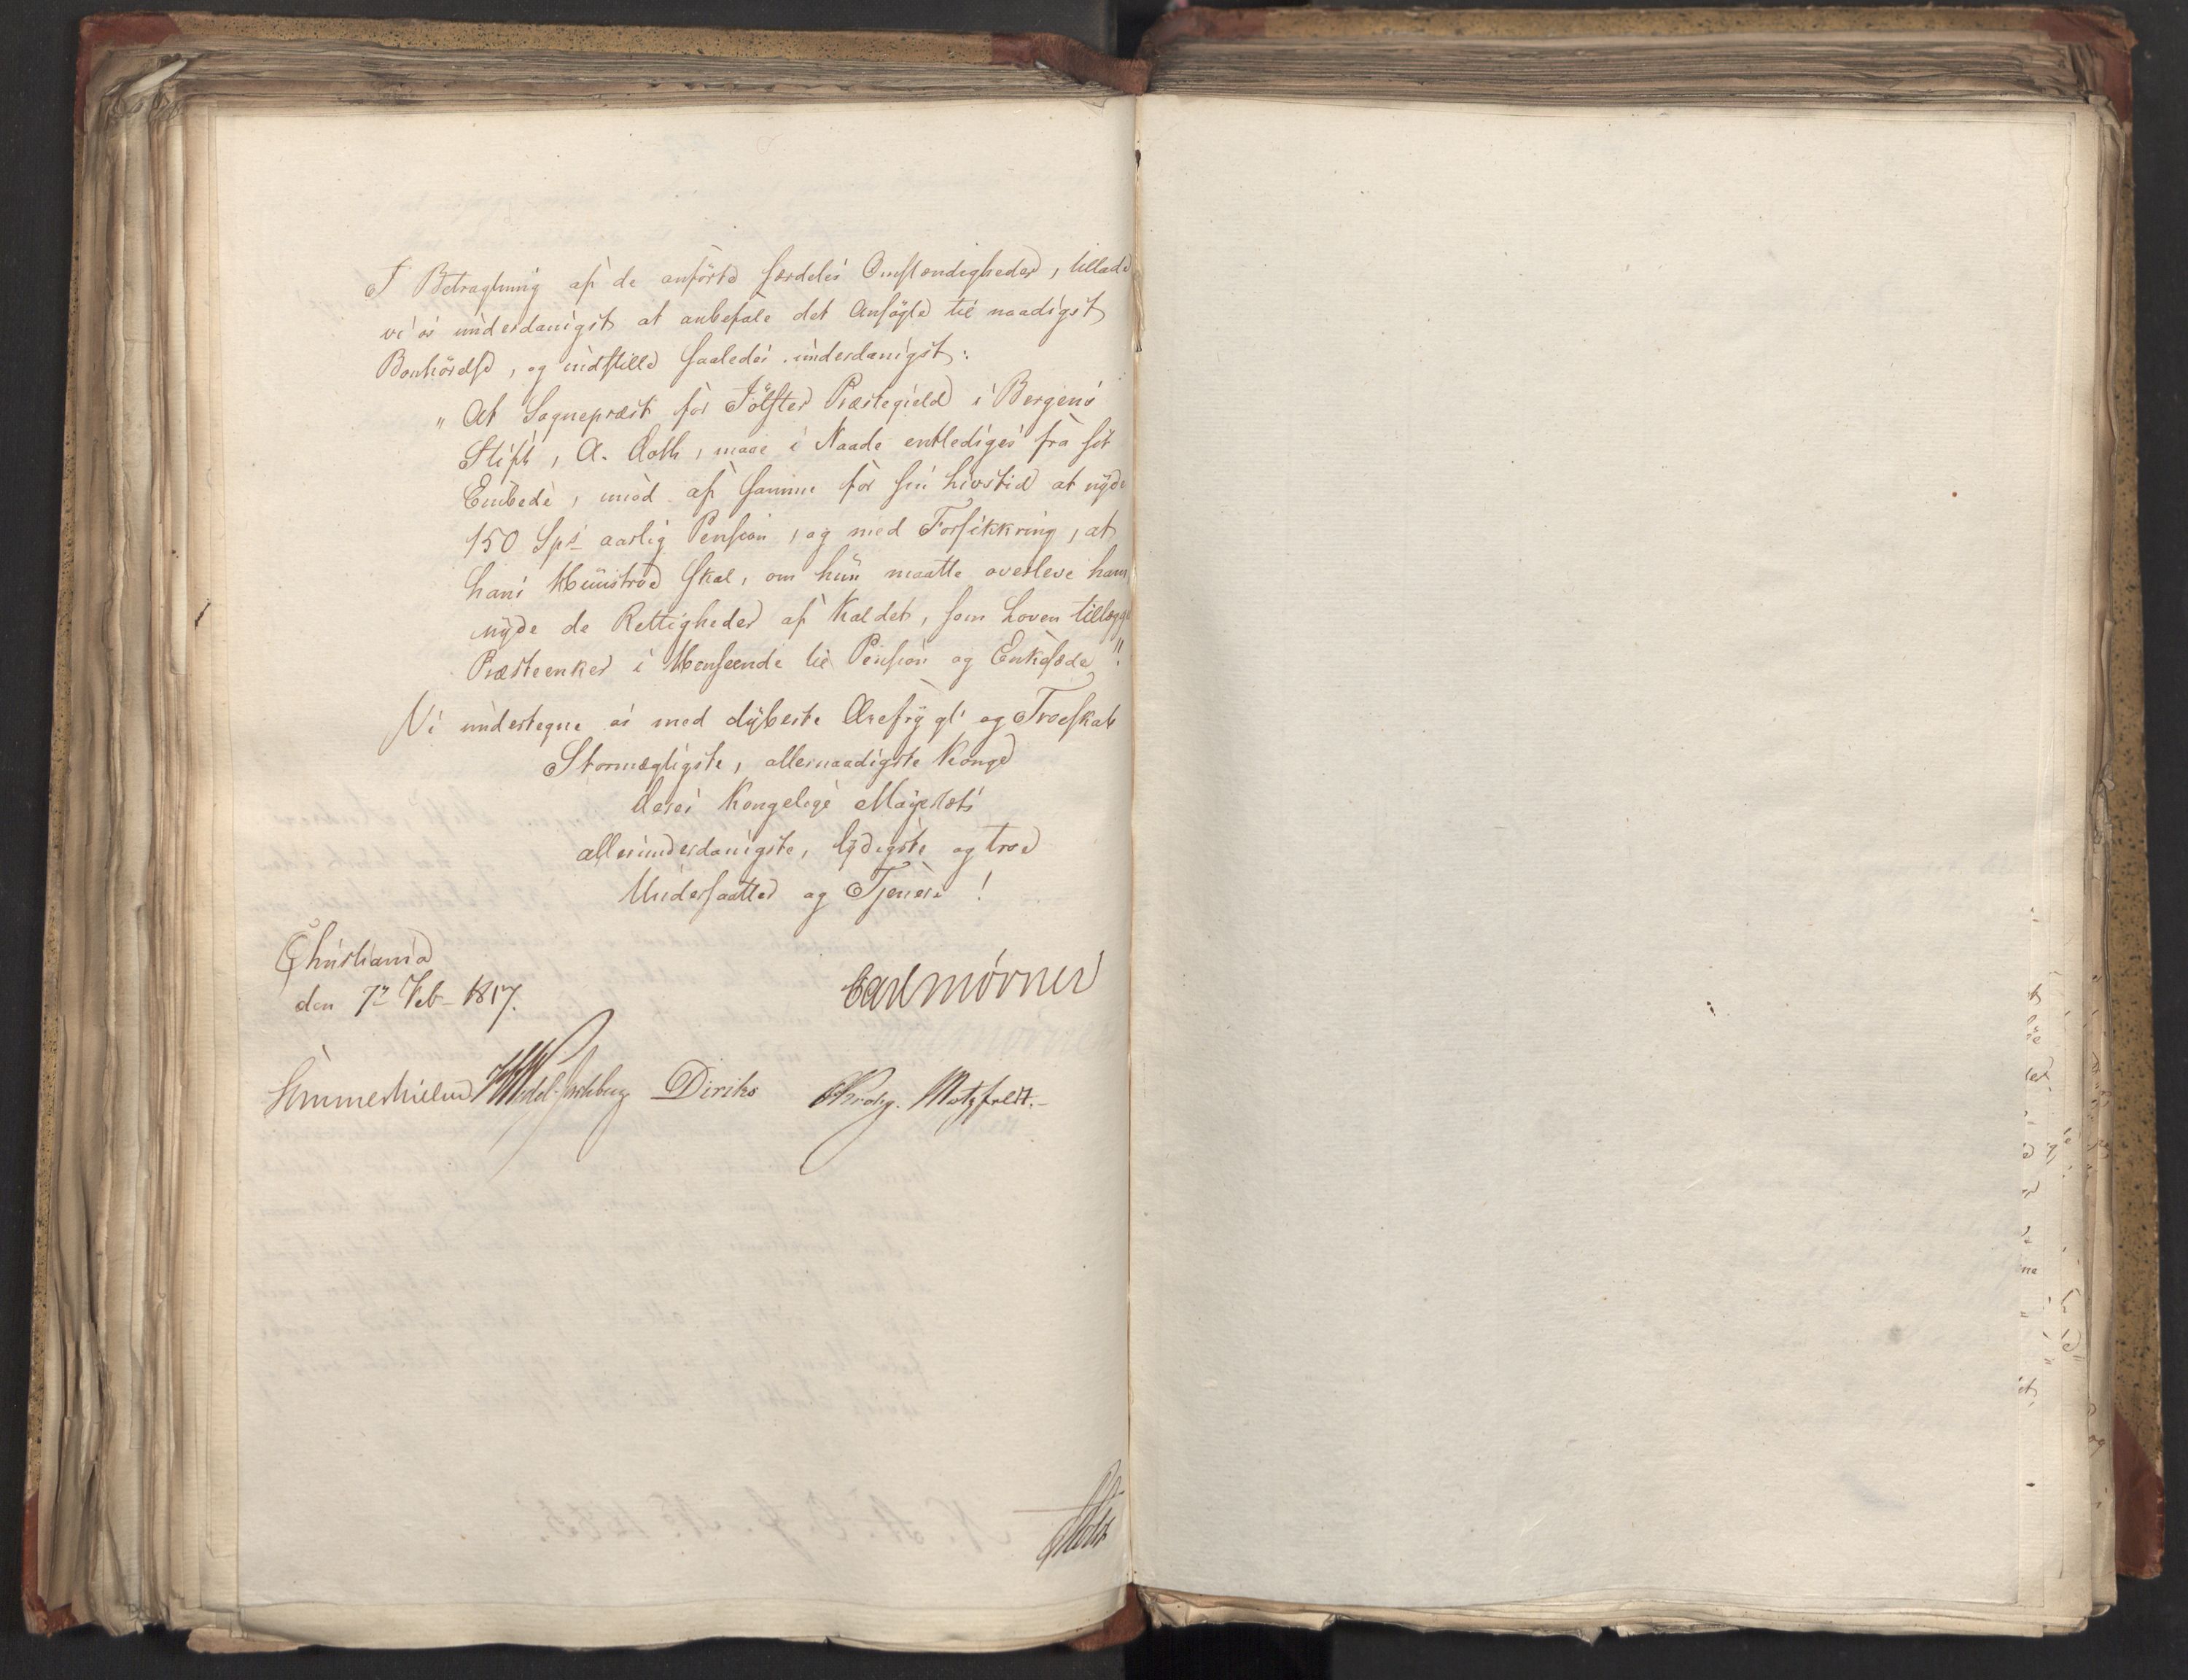 I Betragtning af de anførte særdeles Omstændigheder, tillade
vi os underdanigst at anbefale det Ansøgte til naadigst
Bønhørelse, og indstille saaledes underdanigst:
"At Sognepræst for Jölster Præstegield i Bergens
Stift, A. Dath, maae i Naade entlediges fra sit
Embede, mod af samme for sin Livstid at nyde
150 Sps aarlig Pension, og med Forsikkring, at
hans Hustrue skal, om hun maatte overleve ham
nyde de Rettigheder af Kaldet, som Loven tillægge
Præsteenker i Henseende til Pension og Enkesæde".
Vi undertegne os med dybeste Ærefrygt og Troeskab
Stormægtigste, allernaadigste Konge
Deres Kongelige Majestæts
allerunderdanigste, lydigste og troe
Undersaatter og Tjenere!
Christiania
den 7de Feb- 1817.
Carl Mörner
Sommerhielm Wedel-Jarlsberg Diriks Krohg. Motzfeldt.-
Holst